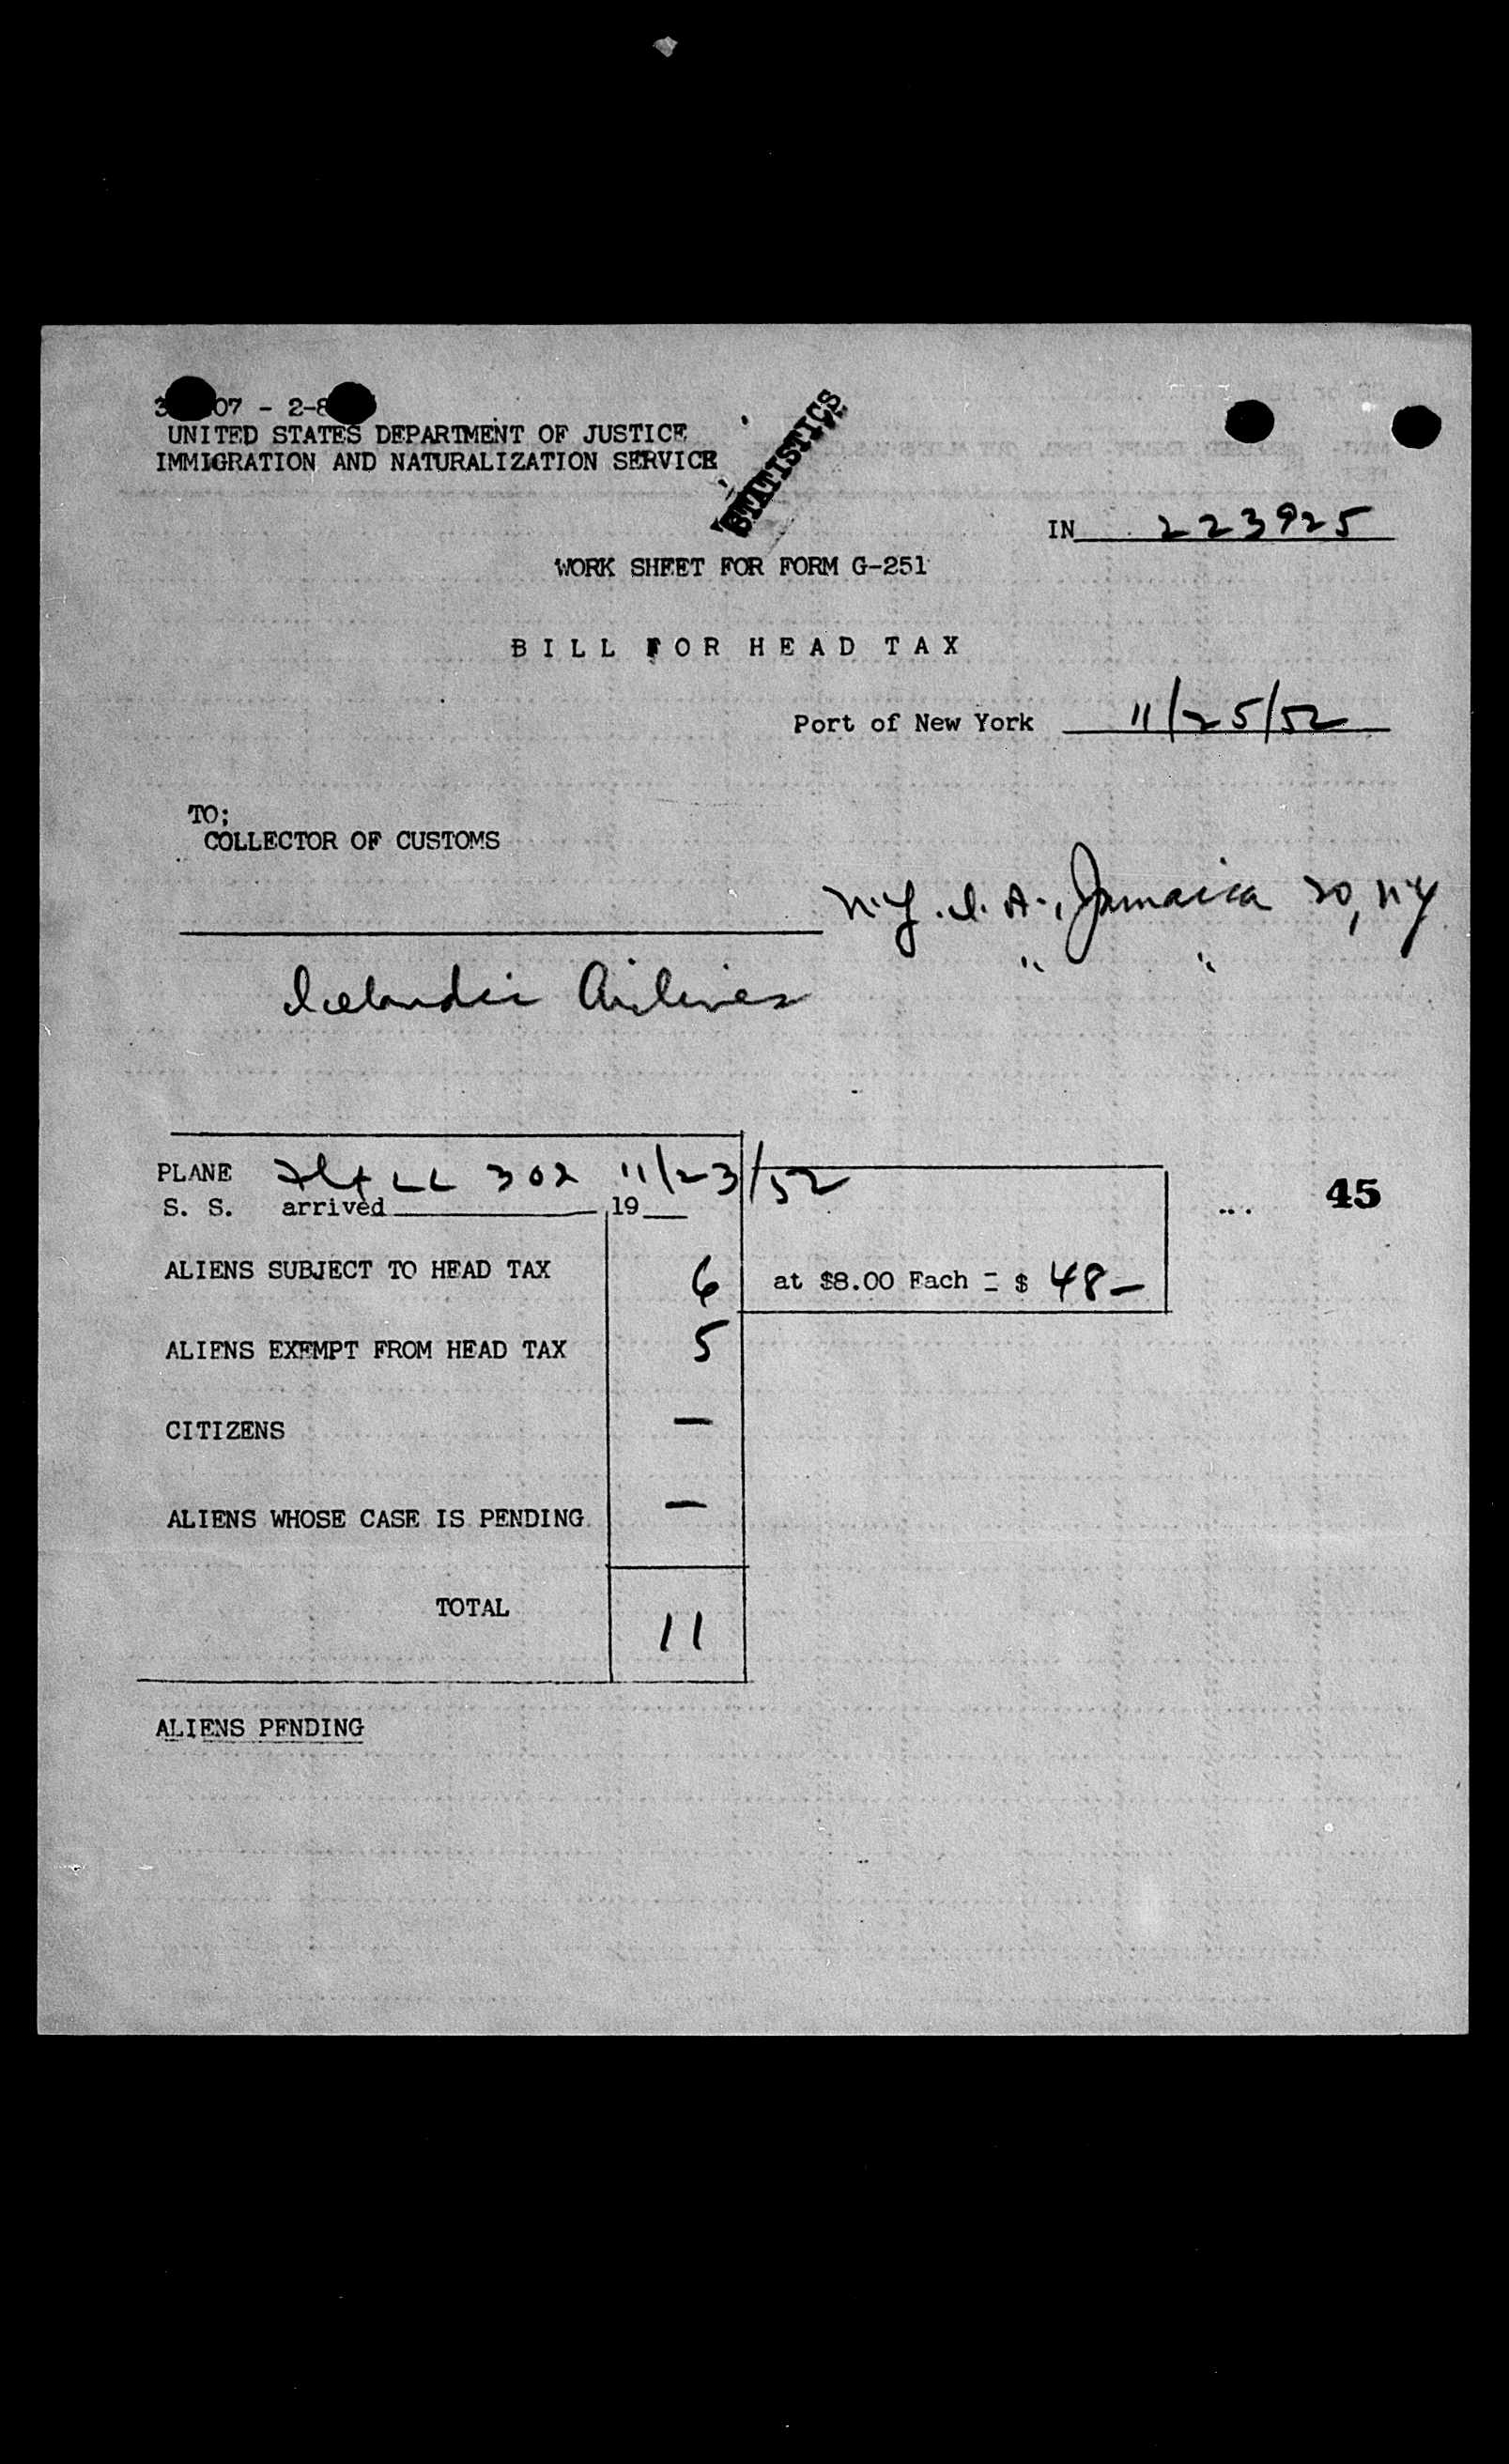 07 - 2-8
UNITED STATES DEPARTMENT OF JUSTICE
IMMIGRATION AND NATURALIZATION SERVICE
STATISTICS
IN 223925
WORK SHEET FOR FORM G-251
BILL FOR HEAD TAX
Port of New York 11/25/52
TO;
COLLECTOR OF CUSTOMS
N.Y.I.A., Jamaica 30, NY
" "
Icelandic Airlines
PLANE Flt LL 302 11/23/52
S. S. arrived 19
45
ALIENS SUBJECT TO HEAD TAX 6 at $8.00 Each = $ 48-
ALIENS EXEMPT FROM HEAD TAX 5
CITIZENS —
ALIENS WHOSE CASE IS PENDING —
TOTAL 11
ALIENS PENDING